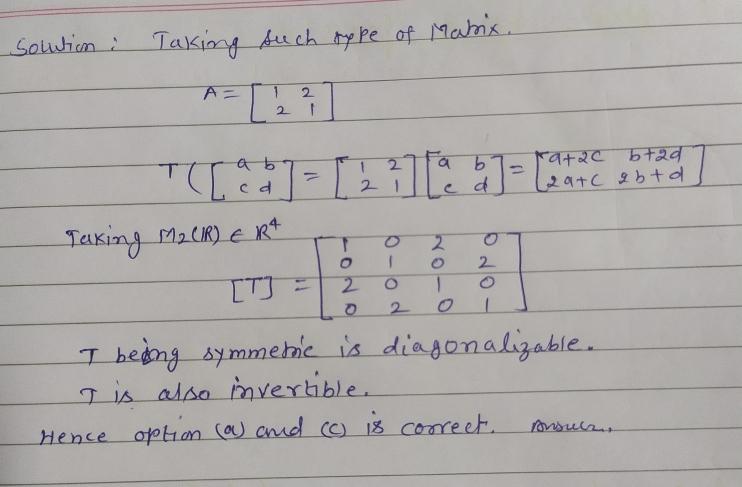 Solution : Taking such type of Matrix.
A = [ 1 2
2 1 ]
T ( [ a b
c d ] = [ 1 2
2 1 ] [ a b
c d ] = [ a+2c b+2d
2a+c 2b+d ]
Taking M2(IR) ∈ IR4
[T] = [ 1 0 2 0
0 1 0 2
2 0 1 0
0 2 0 1 ]
T being symmetric is diagonalizable.
T is also invertible.
Hence option (a) and (c) is correct. Answer.